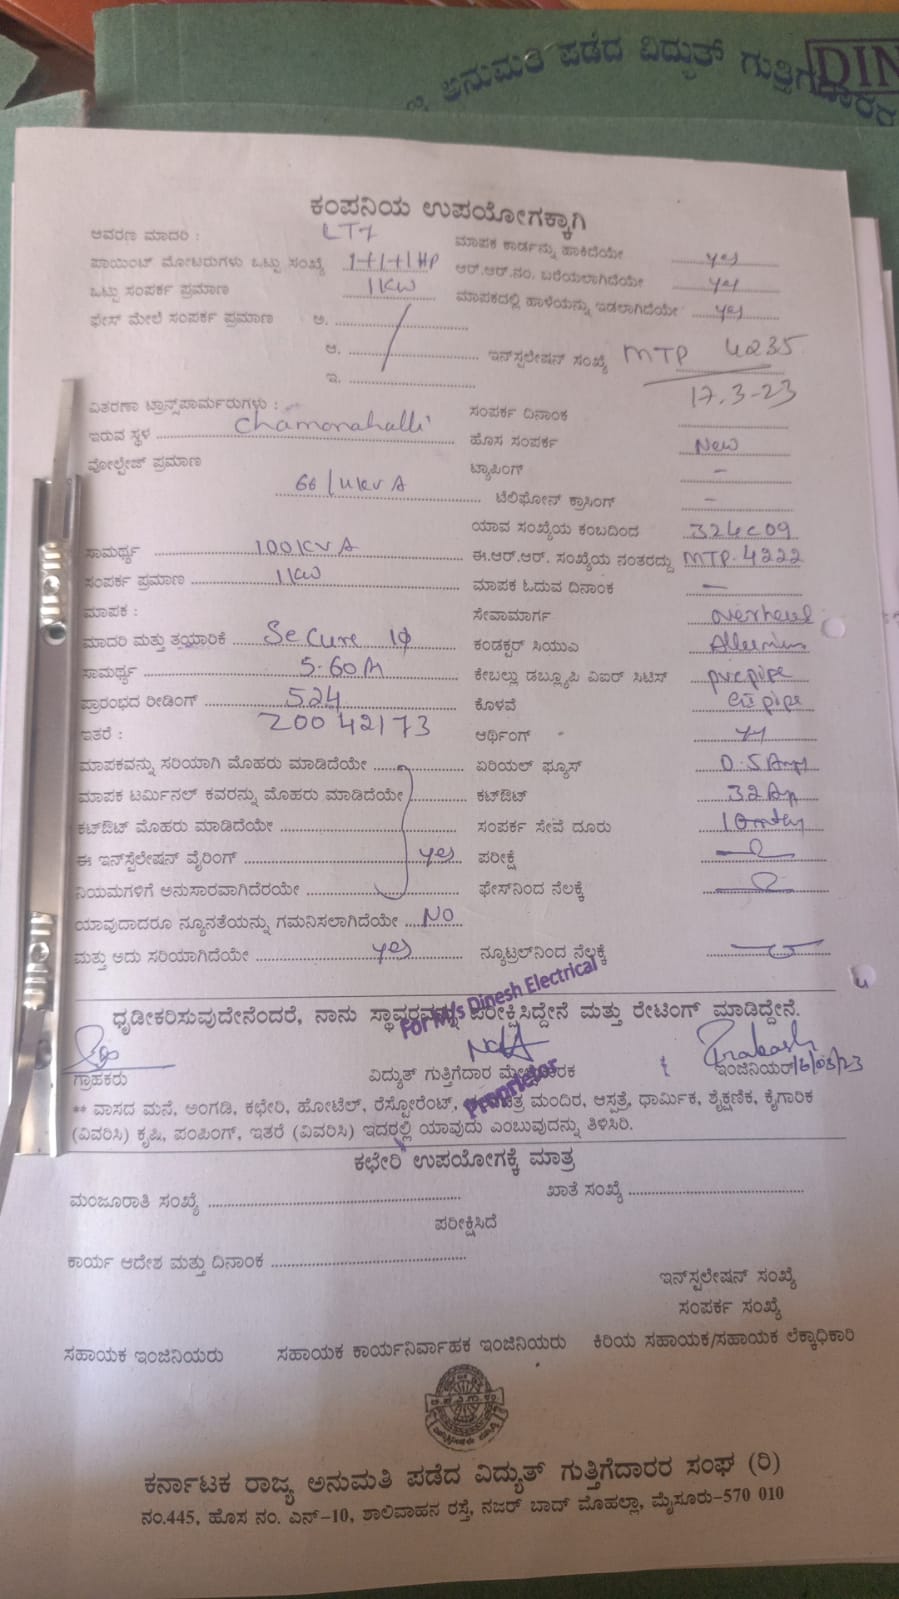 ಅನುಮತಿ ಪಡೆದ ವಿದ್ಯುತ್ ಗುತ್ತಿಗೆದಾರರ
DIN
ಕಂಪನಿಯ ಉಪಯೋಗಕ್ಕಾಗಿ
ಆವರಣ ಮಾದರಿ : LT7 ಮಾಪಕ ಕಾರ್ಡನ್ನು ಹಾಕಿದೆಯೇ yes
ಪಾಯಿಂಟ್ ಮೋಟರುಗಳು ಒಟ್ಟು ಸಂಖ್ಯೆ 1+1+1HP ಆರ್.ಆರ್.ನಂ. ಬರೆಯಲಾಗಿದೆಯೇ yes
ಒಟ್ಟು ಸಂಪರ್ಕ ಪ್ರಮಾಣ 1KW ಮಾಪಕದಲ್ಲಿ ಹಾಳೆಯನ್ನು ಇಡಲಾಗಿದೆಯೇ yes
ಫೇಸ್ ಮೇಲೆ ಸಂಪರ್ಕ ಪ್ರಮಾಣ ಅ.
ಆ. ಇನ್ಸ್ಟಲೇಷನ್ ಸಂಖ್ಯೆ MTP 4235
ಇ. 17.3-23
ವಿತರಣಾ ಟ್ರಾನ್ಸ್‌ಪಾರ್ಮರುಗಳು : ಸಂಪರ್ಕ ದಿನಾಂಕ
ಇರುವ ಸ್ಥಳ Chamanahalli ಹೊಸ ಸಂಪರ್ಕ New
ವೋಲ್ಟೇಜ್ ಪ್ರಮಾಣ ಟ್ಯಾಪಿಂಗ್ -
66/11KVA ಟೆಲಿಫೋನ್ ಕ್ರಾಸಿಂಗ್ -
ಯಾವ ಸಂಖ್ಯೆಯ ಕಂಬದಿಂದ 324C09
ಸಾಮರ್ಥ್ಯ 100KVA ಈ.ಆರ್.ಆರ್. ಸಂಖ್ಯೆಯ ನಂತರದ್ದು MTP-4222
ಸಂಪರ್ಕ ಪ್ರಮಾಣ 1KW ಮಾಪಕ ಓದುವ ದಿನಾಂಕ -
ಮಾಪಕ : ಸೇವಾಮಾರ್ಗ overhead
ಮಾದರಿ ಮತ್ತು ತಯಾರಿಕೆ Secure 1φ ಕಂಡಕ್ಟರ್ ಸಿಯುಎ
ಸಾಮರ್ಥ್ಯ 5-60A ಕೇಬಲ್ಲು ಡಬ್ಲ್ಯೂಪಿ ವಿಐಆರ್ ಸಿಟಿಸ್ pvcpipe
ಪ್ರಾರಂಭದ ರೀಡಿಂಗ್ 524 ಕೊಳವೆ GI pipe
ಇತರೆ : Z0042173 ಆರ್ಥಿಂಗ್
ಮಾಪಕವನ್ನು ಸರಿಯಾಗಿ ಮೊಹರು ಮಾಡಿದೆಯೇ ಏರಿಯಲ್ ಫ್ಯೂಸ್ 0.5Amp
ಮಾಪಕ ಟರ್ಮಿನಲ್ ಕವರನ್ನು ಮೊಹರು ಮಾಡಿದೆಯೇ ಕಟ್‌ಔಟ್ 32Ap
ಕಟ್‌ಔಟ್ ಮೊಹರು ಮಾಡಿದೆಯೇ ಸಂಪರ್ಕ ಸೇವೆ ದೂರು
ಈ ಇನ್‌ಸ್ಟಲೇಷನ್ ವೈರಿಂಗ್ yes ಪರೀಕ್ಷೆ
ನಿಯಮಗಳಿಗೆ ಅನುಸಾರವಾಗಿದೆರಯೇ ಫೇಸ್‌ನಿಂದ ನೆಲಕ್ಕೆ
ಯಾವುದಾದರೂ ನ್ಯೂನತೆಯನ್ನು ಗಮನಿಸಲಾಗಿದೆಯೇ NO
ಮತ್ತು ಅದು ಸರಿಯಾಗಿದೆಯೇ yes ನ್ಯೂಟ್ರಲ್‌ನಿಂದ ನೆಲಕ್ಕೆ
For M/s Dinesh Electrical
ಧೃಡೀಕರಿಸುವುದೇನೆಂದರೆ, ನಾನು ಸ್ಥಾವರವನ್ನು ಪರೀಕ್ಷಿಸಿದ್ದೇನೆ ಮತ್ತು ರೇಟಿಂಗ್ ಮಾಡಿದ್ದೇನೆ.
Prakash
ಗ್ರಾಹಕರು ವಿದ್ಯುತ್ ಗುತ್ತಿಗೆದಾರ ಮೇಲ್ವಿಚಾರಕ ಇಂಜಿನಿಯರ್ 16/03/23
Proprietor
** ವಾಸದ ಮನೆ, ಅಂಗಡಿ, ಕಛೇರಿ, ಹೋಟೆಲ್, ರೆಸ್ಟೋರೆಂಟ್, ಮಂದಿರ, ಆಸ್ಪತ್ರೆ, ಧಾರ್ಮಿಕ, ಶೈಕ್ಷಣಿಕ, ಕೈಗಾರಿಕ
(ವಿವರಿಸಿ) ಕೃಷಿ, ಪಂಪಿಂಗ್, ಇತರೆ (ವಿವರಿಸಿ) ಇದರಲ್ಲಿ ಯಾವುದು ಎಂಬುವುದನ್ನು ತಿಳಿಸಿರಿ.
ಕಛೇರಿ ಉಪಯೋಗಕ್ಕೆ ಮಾತ್ರ
ಮಂಜೂರಾತಿ ಸಂಖ್ಯೆ ಖಾತೆ ಸಂಖ್ಯೆ
ಪರೀಕ್ಷಿಸಿದೆ
ಕಾರ್ಯ ಆದೇಶ ಮತ್ತು ದಿನಾಂಕ
ಇನ್‌ಸ್ಟಲೇಷನ್ ಸಂಖ್ಯೆ
ಸಂಪರ್ಕ ಸಂಖ್ಯೆ
ಸಹಾಯಕ ಇಂಜಿನಿಯರು ಸಹಾಯಕ ಕಾರ್ಯನಿರ್ವಾಹಕ ಇಂಜಿನಿಯರು ಕಿರಿಯ ಸಹಾಯಕ/ಸಹಾಯಕ ಲೆಕ್ಕಾಧಿಕಾರಿ
ಕರ್ನಾಟಕ ರಾಜ್ಯ ಅನುಮತಿ ಪಡೆದ ವಿದ್ಯುತ್ ಗುತ್ತಿಗೆದಾರರ ಸಂಘ (ರಿ)
ನಂ.445, ಹೊಸ ನಂ. ಎನ್-10, ಶಾಲಿವಾಹನ ರಸ್ತೆ, ನಜರ್ ಬಾದ್ ಮೊಹಲ್ಲಾ, ಮೈಸೂರು-570 010